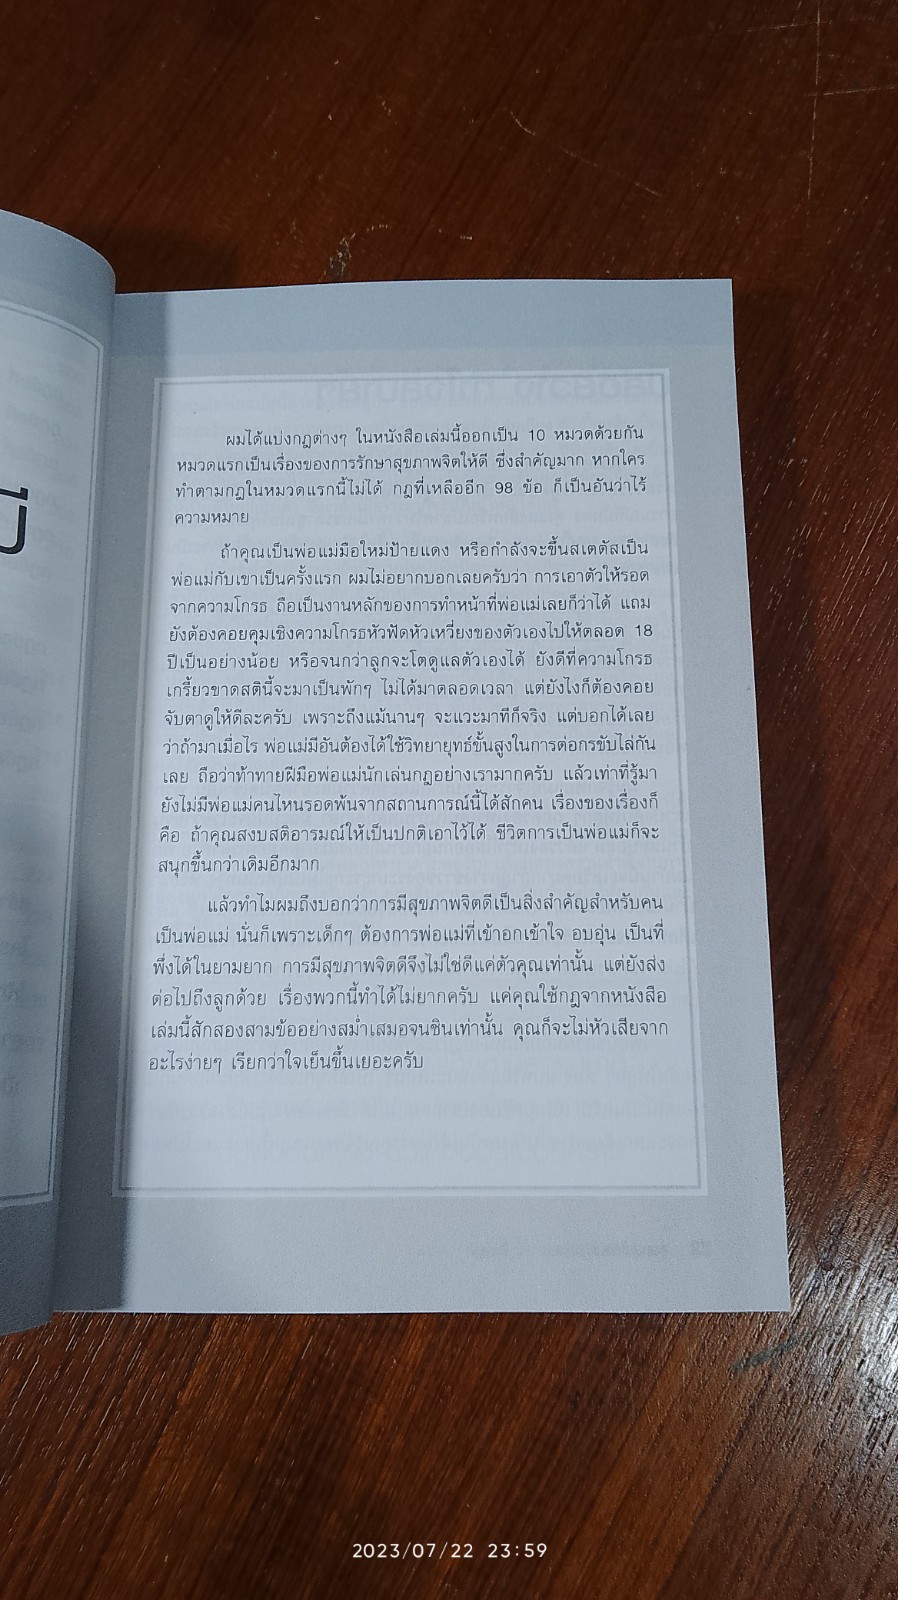 ผมได้แบ่งกฎต่างๆ ในหนังสือเล่มนี้ออกเป็น 10 หมวดด้วยกัน
หมวดแรกเป็นเรื่องของการรักษาสุขภาพจิตให้ดี ซึ่งสำคัญมาก หากใคร
ทำตามกฎในหมวดแรกนี้ไม่ได้ กฎที่เหลืออีก 98 ข้อ ก็เป็นอันว่าไร้
ความหมาย
ถ้าคุณเป็นพ่อแม่มือใหม่ป้ายแดง หรือกำลังจะขึ้นสเตตัสเป็น
พ่อแม่กับเขาเป็นครั้งแรก ผมไม่อยากบอกเลยครับว่า การเอาตัวให้รอด
จากความโกรธ ถือเป็นงานหลักของการทำหน้าที่พ่อแม่เลยก็ว่าได้ แถม
ยังต้องคอยคุมเชิงความโกรธหัวฟัดหัวเหวี่ยงของตัวเองไปให้ตลอด 18
ปีเป็นอย่างน้อย หรือจนกว่าลูกจะโตดูแลตัวเองได้ ยังดีที่ความโกรธ
เกรี้ยวขาดสตินี้จะมาเป็นพักๆ ไม่ได้มาตลอดเวลา แต่ยังไงก็ต้องคอย
จับตาดูให้ดีละครับ เพราะถึงแม้นานๆ จะแวะมาทีก็จริง แต่บอกได้เลย
ว่าถ้ามาเมื่อไร พ่อแม่มีอันต้องได้ใช้วิทยายุทธ์ขั้นสูงในการต่อกรขับไล่กัน
เลย ถือว่าท้าทายฝีมือพ่อแม่นักเล่นกฎอย่างเรามากครับ แล้วเท่าที่รู้มา
ยังไม่มีพ่อแม่คนไหนรอดพ้นจากสถานการณ์นี้ได้สักคน เรื่องของเรื่องก็
คือ ถ้าคุณสงบสติอารมณ์ให้เป็นปกติเอาไว้ได้ ชีวิตการเป็นพ่อแม่ก็จะ
สนุกขึ้นกว่าเดิมอีกมาก
แล้วทำไมผมถึงบอกว่าการมีสุขภาพจิตดีเป็นสิ่งสำคัญสำหรับคน
เป็นพ่อแม่ นั่นก็เพราะเด็กๆ ต้องการพ่อแม่ที่เข้าอกเข้าใจ อบอุ่น เป็นที่
พึ่งได้ในยามยาก การมีสุขภาพจิตดีจึงไม่ใช่ดีแค่ตัวคุณเท่านั้น แต่ยังส่ง
ต่อไปถึงลูกด้วย เรื่องพวกนี้ทำได้ไม่ยากครับ แค่คุณใช้กฎจากหนังสือ
เล่มนี้สักสองสามข้ออย่างสม่ำเสมอจนชินเท่านั้น คุณก็จะไม่หัวเสียจาก
อะไรง่ายๆ เรียกว่าใจเย็นขึ้นเยอะครับ
2023/07/22 23:59